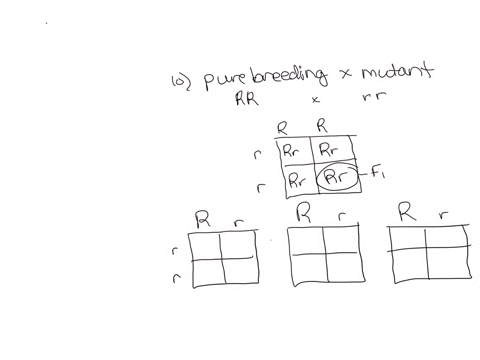 10) pure breeding x mutant
RR x rr
R R
r Rr Rr
r Rr Rr - F1
R r R r R r
r
r